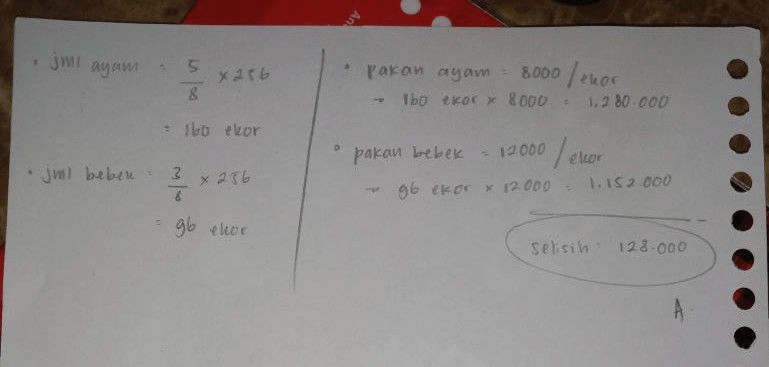 • jml ayam = 5/8 × 256
= 160 ekor
• jml bebek = 3/8 × 256
= 96 ekor
• pakan ayam = 8000/ekor
→ 160 ekor × 8000 = 1.280.000
• pakan bebek = 12000/ekor
→ 96 ekor × 12000 = 1.152.000
selisih = 128.000
A.